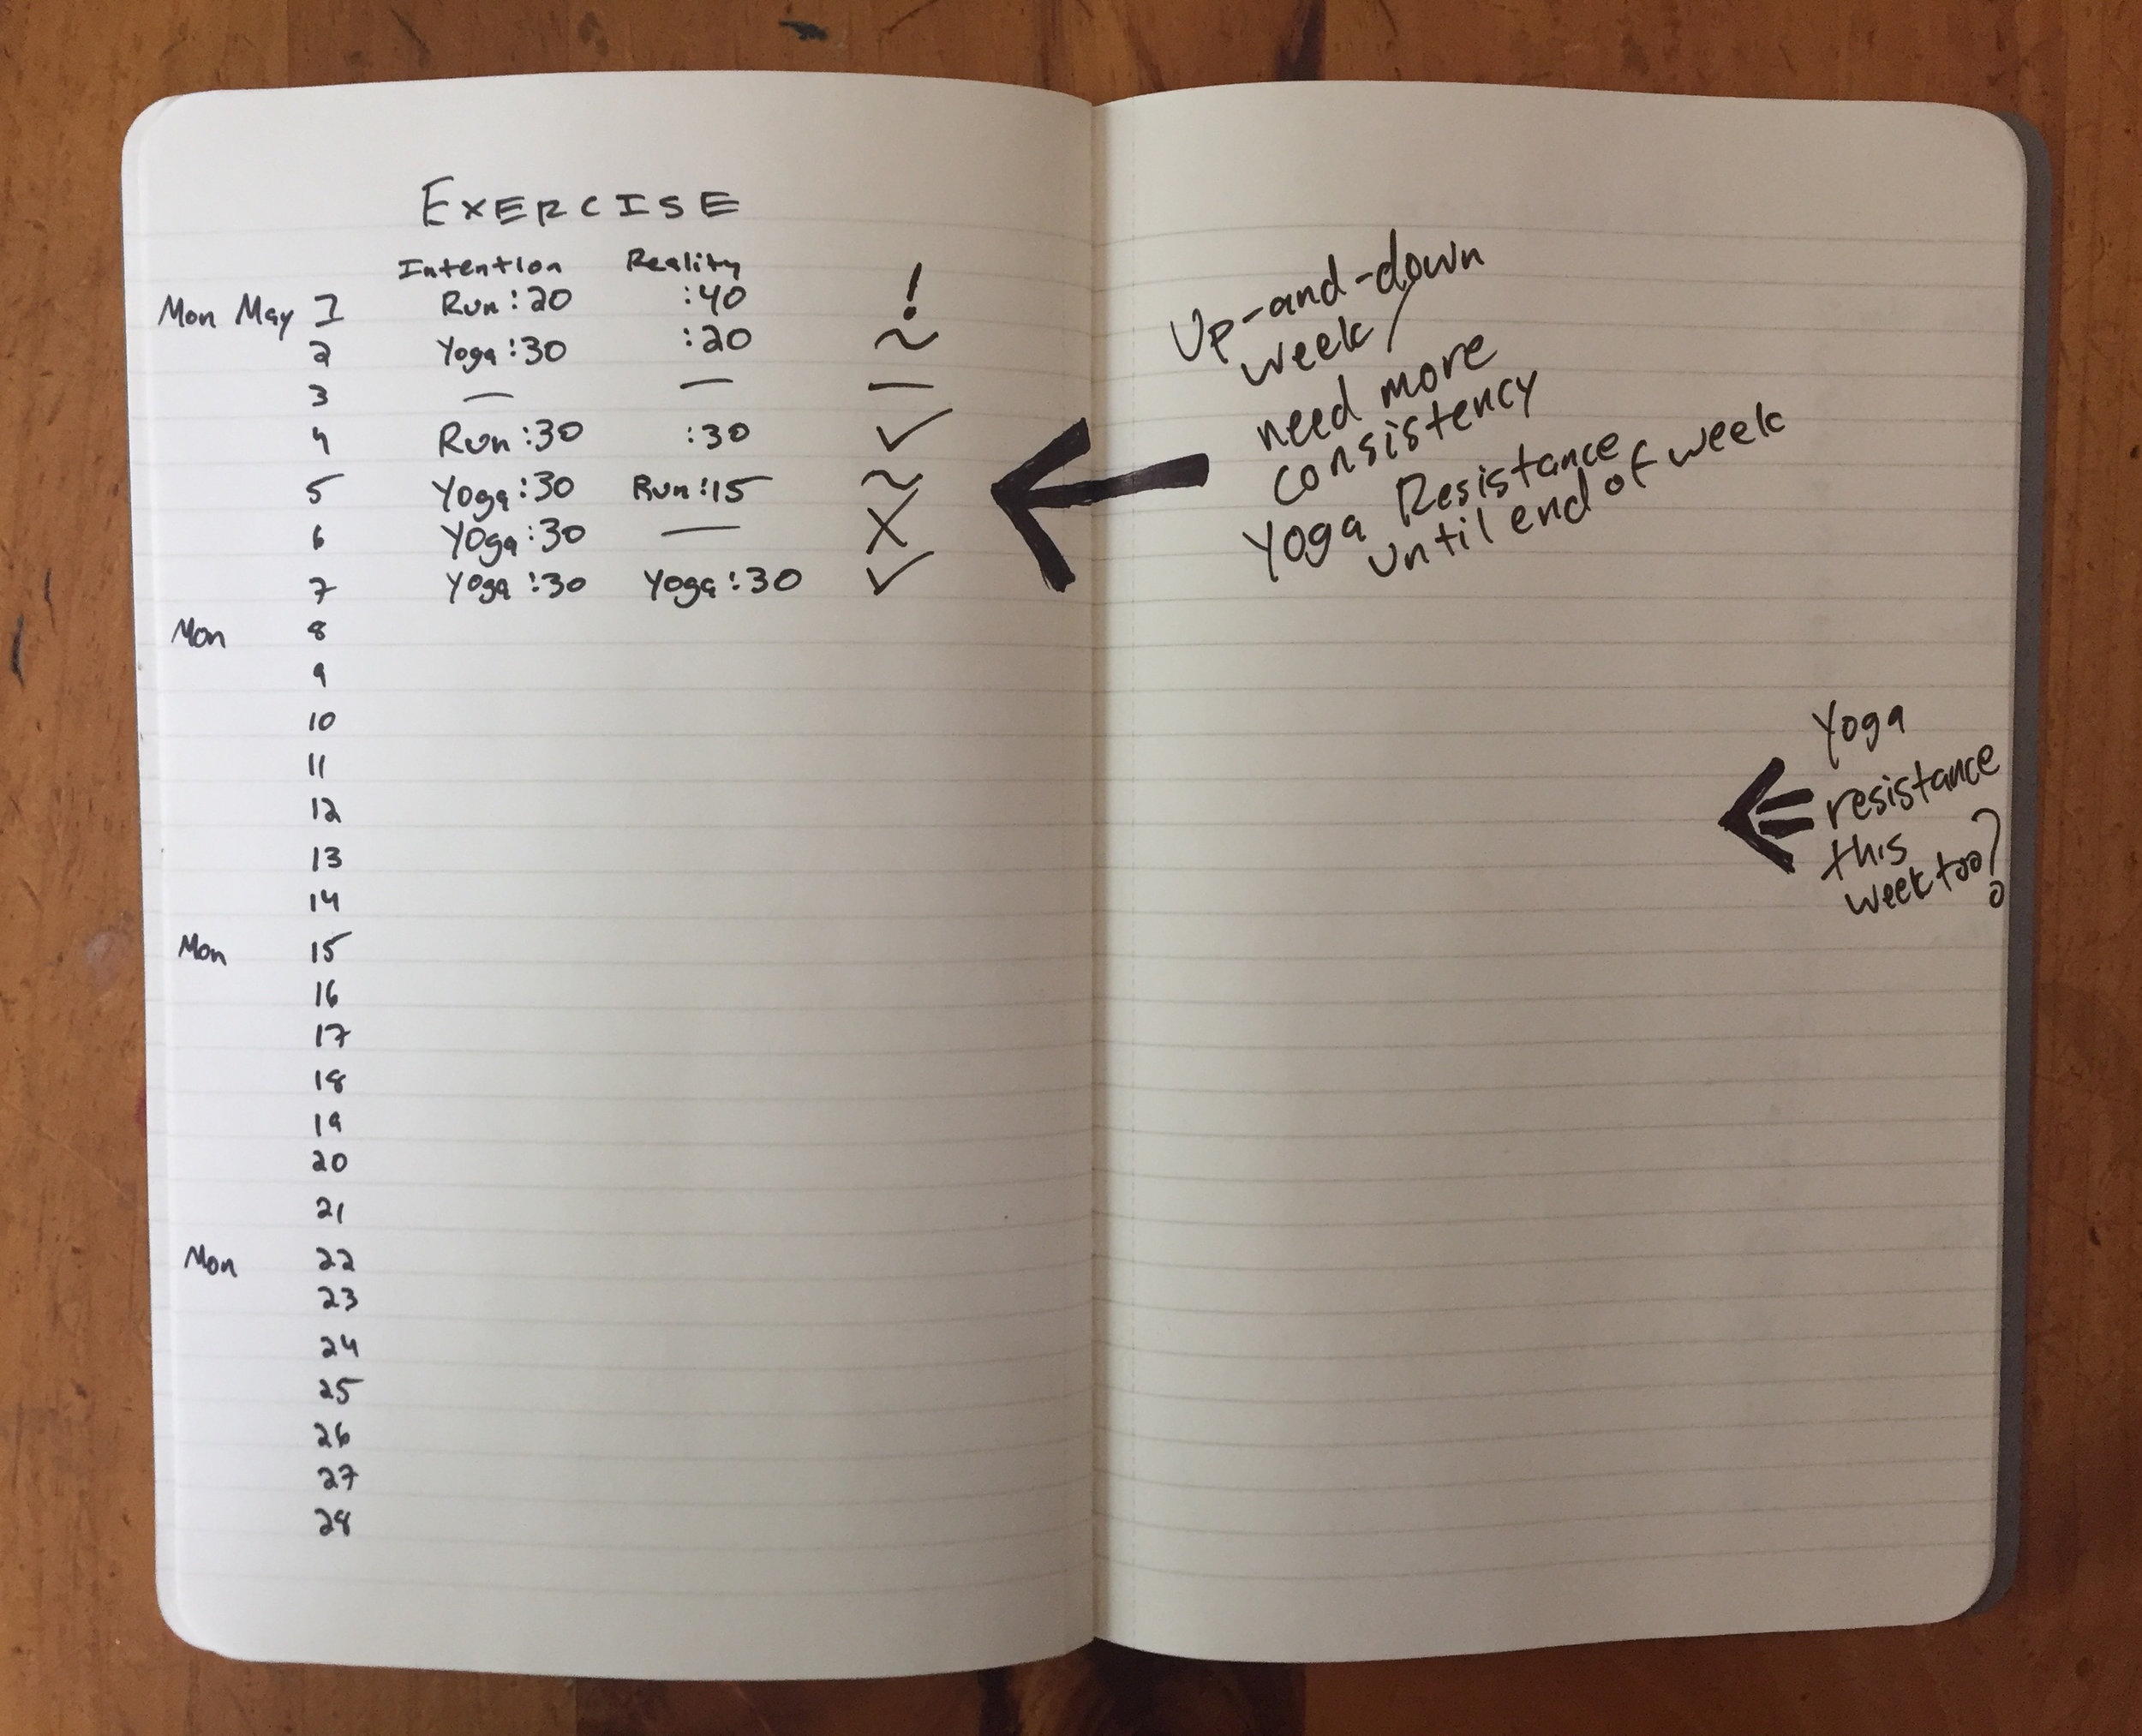 EXERCISE
Intention Reality
Mon May 1 Run :20 :40 !
2 Yoga :30 :20 ~
3 — — —
4 Run :30 :30 ✓
5 Yoga :30 Run :15 ~
6 Yoga :30 — X
7 Yoga :30 Yoga :30 ✓
Mon 8
9
10
11
12
13
14
Mon 15
16
17
18
19
20
21
Mon 22
23
24
25
26
27
28
Up-and-down
week/
need more
consistency
Yoga Resistance
until end of week
Yoga
resistance
this
week too?